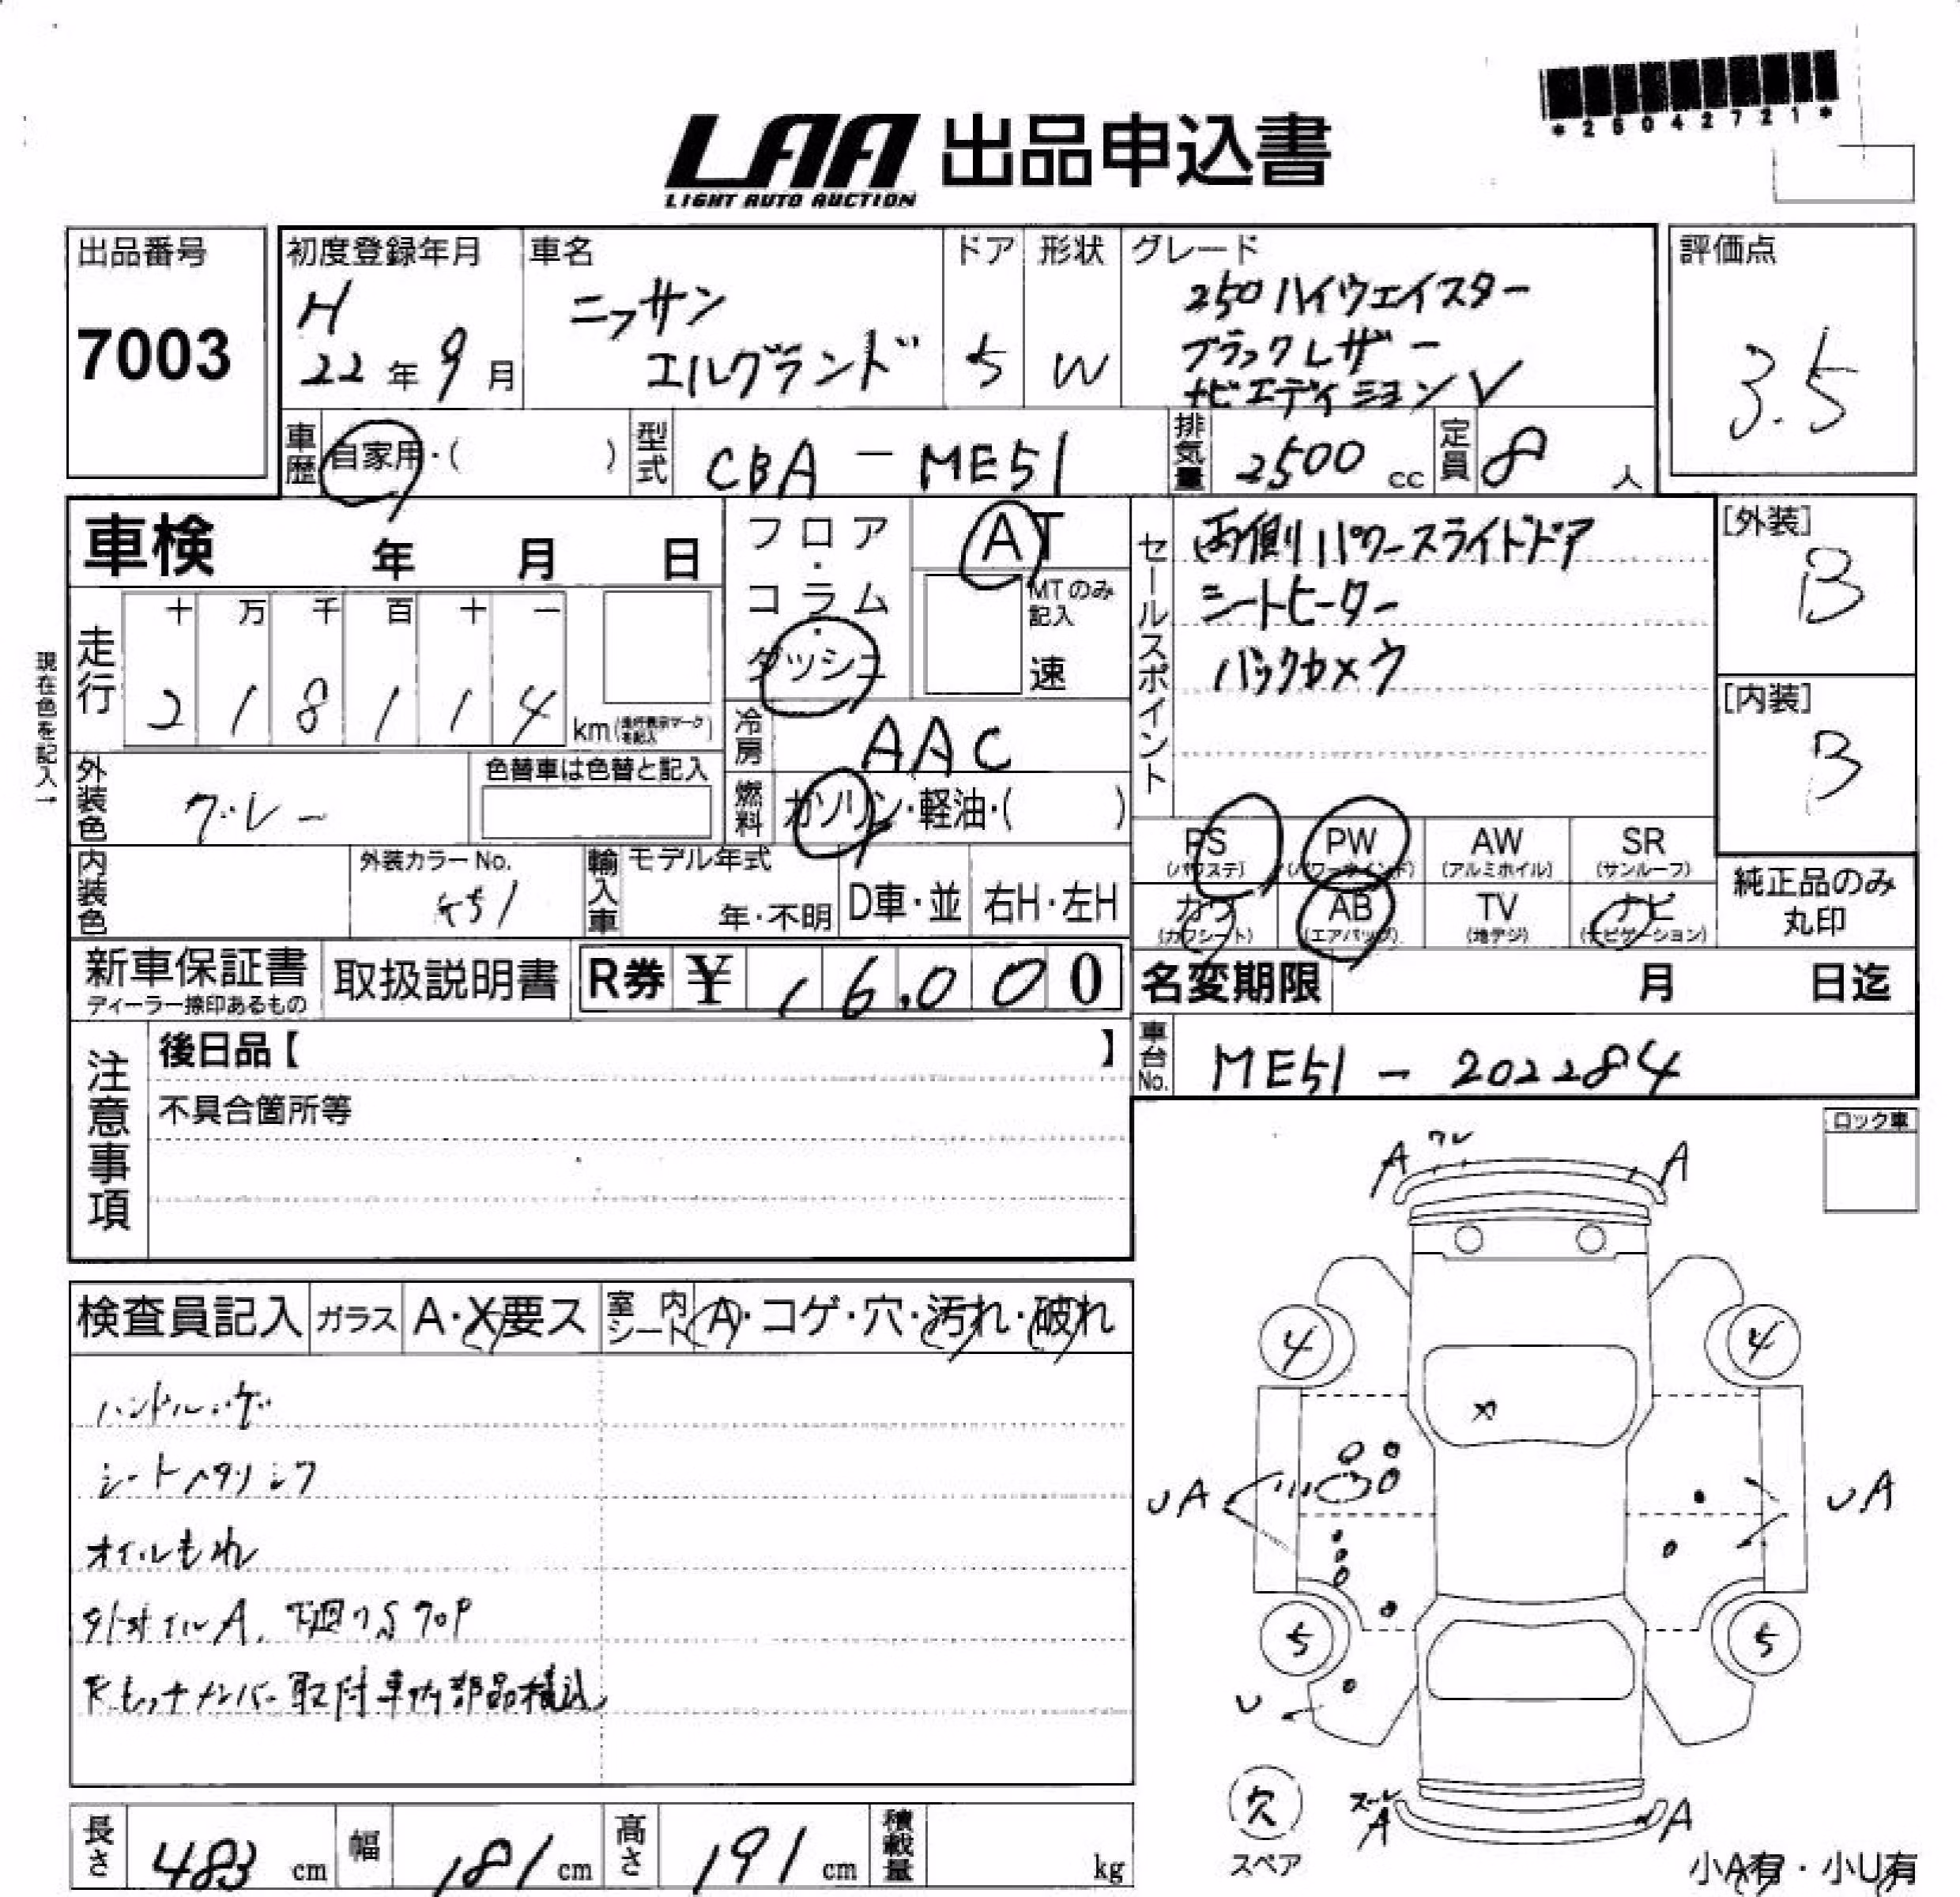 *25042721*
LAA 出品申込書
LIGHT AUTO AUCTION
出品番号 7003
初度登録年月 H 22年 9月
車名 ニッサン エルグランド
ドア 5
形状 W
グレード 250ハイウェイスター
ブラックレザー
ナビエディションV
評価点 3.5
車歴 自家用・( )
型式 CBA-ME51
排気量 2500cc
定員 8人
車検 年 月 日
フロア・コラム・ダッシュ
AT
MTのみ記入 速
セールスポイント
両側パワースライドドア
シートヒーター
バックカメラ
[外装] B
[内装] B
現在色を記入→
走行 十 万 千 百 十 一
2 1 8 1 1 4 km(走行表示マークを記入)
冷房 AAC
燃料 ガソリン・軽油・( )
外装色 グレー
色替車は色替と記入
内装色
外装カラーNo. K51
輸入車 モデル年式 年・不明
D車・並
右H・左H
PS (パワステ) PW (パワーウインド) AW (アルミホイル) SR (サンルーフ)
カワ (カワシート) AB (エアバッグ) TV (地デジ) ナビ (ナビゲーション)
純正品のみ丸印
新車保証書 ディーラー捺印あるもの
取扱説明書
R券 ¥ 16,000
名変期限 月 日迄
車台No. ME51-202284
注意事項
後日品【 】
不具合箇所等
ロック車
検査員記入 ガラス A・X要ス 室内シート A・コゲ・穴・汚れ・破れ
ハンドルハゲ
シートヘタリ シワ
オイルもれ
タイヤホイルA、下廻り
取付 車内部品積込
A ワレ A
4 4
UA UA
5 5
U
欠
スペア
A A
小A有・小U有
長さ 483cm
幅 181cm
高さ 191cm
積載量 kg